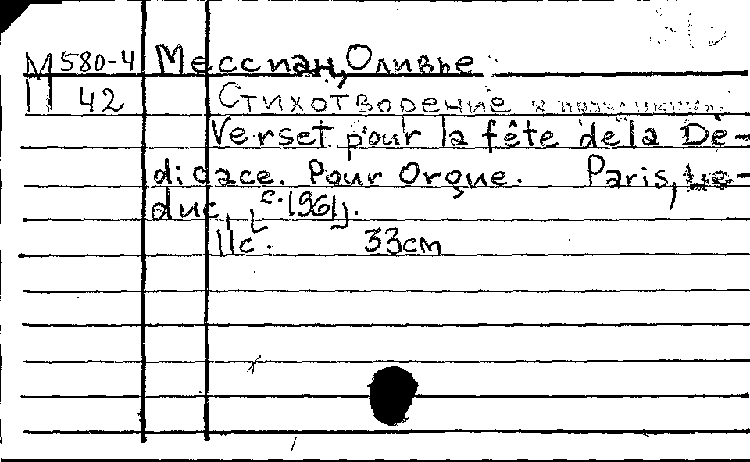 М 580-4 Мессиан, Оливье
П 42 Стихотворение к
Verset pour la fête de la Dé-
dicace. Pour Orgue. Paris, Le-
duc, [c. 1961].
11 с. 33cm